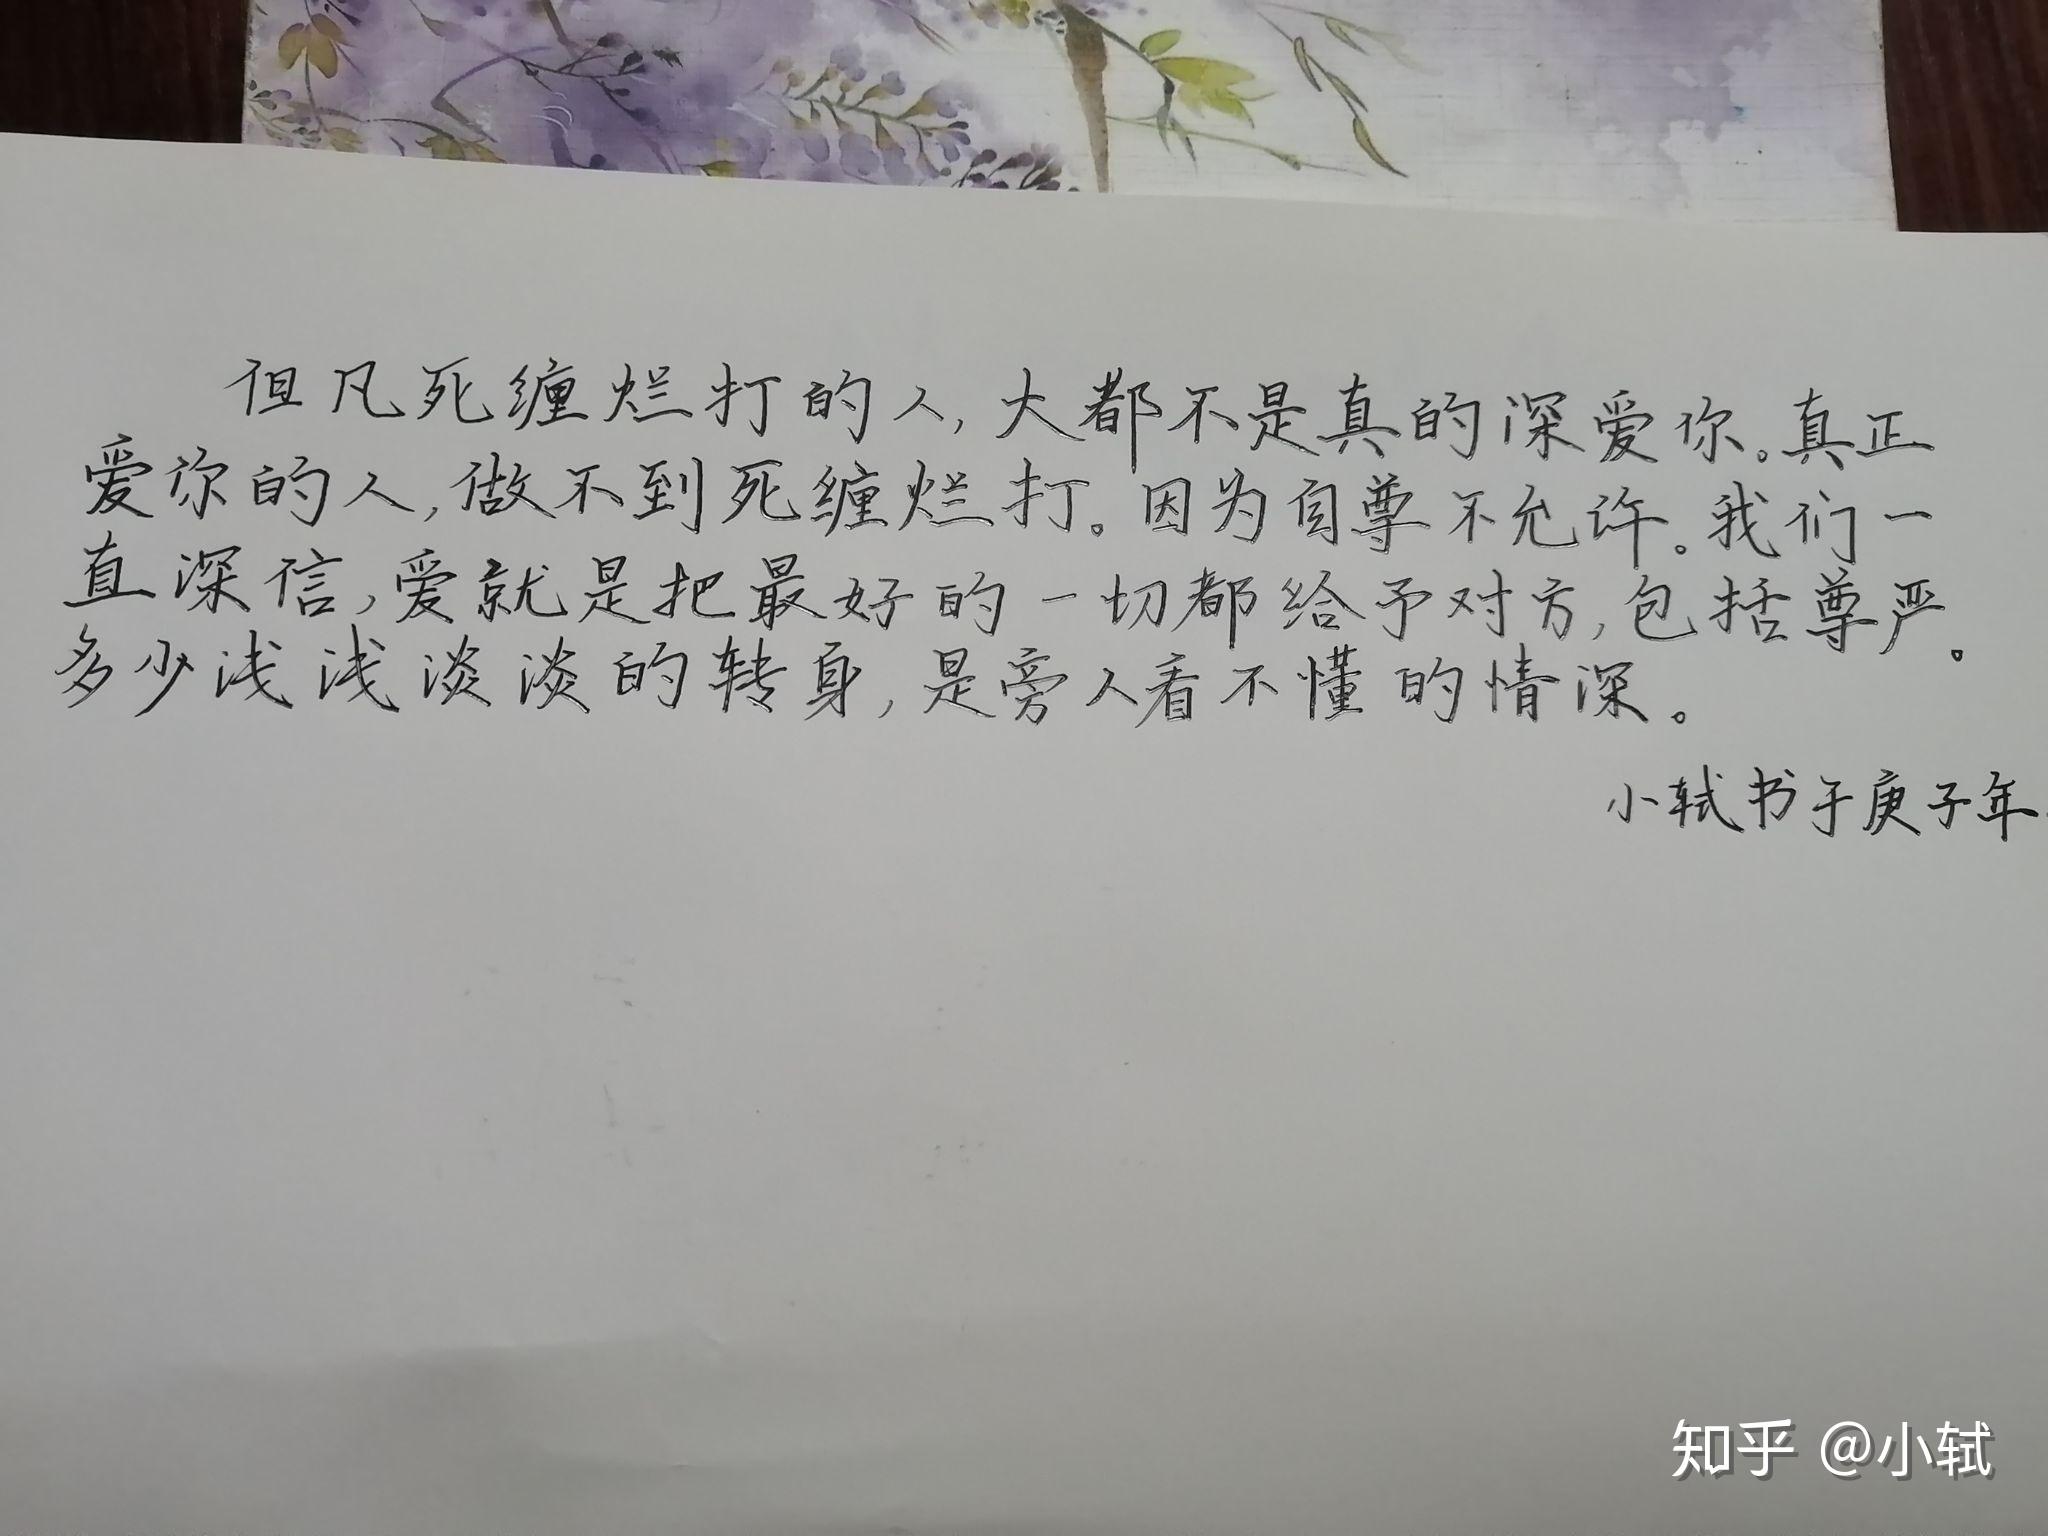 但凡死缠烂打的人,大都不是真的深爱你。真正
爱你的人,做不到死缠烂打。因为自尊不允许。我们一
直深信,爱就是把最好的一切都给予对方,包括尊严。
多少浅浅淡淡的转身,是旁人看不懂的情深。
小轼书于庚子年.
知乎 @小轼